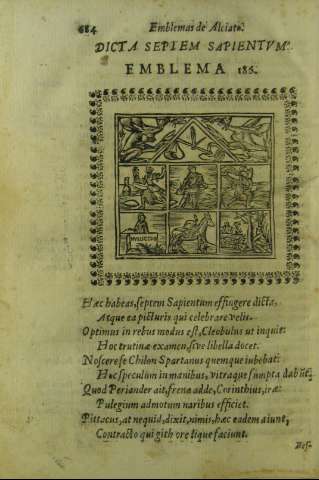 684 Emblemas de Alciato.
DICTA SEPTEM SAPIENTVM.
EMBLEMA 186.
Hæc habeas, septem Sapientum effingere dicta,
Atque ea picturis qui celebrare velis.
Optimus in rebus modus est, Cleobulus ut inquit:
Hoc trutinæ examen, sive libella docet.
Noscere se Chilon Spartanus quemque iubebat:
Hoc speculum in manibus, vitraque sumpta dabunt.
Quod Periander ait, frena adde, Corinthius, iræ:
Pulegium admotum naribus efficiet.
Pittacus, at nequid, dixit, nimis, hæc eadem aiunt,
Contracto qui gith ore liquefaciunt.